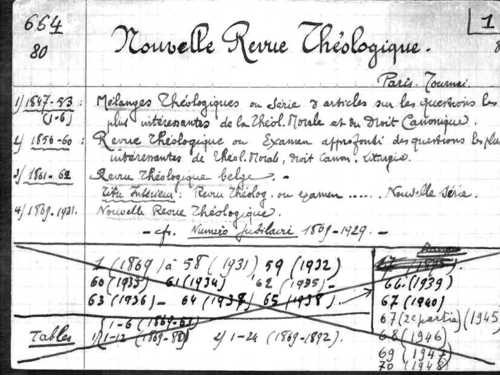 664
80
Nouvelle Revue Théologique.
1
Paris. Tournai
1) 1847-53: Mélanges Théologiques ou Série d'articles sur les questions les
(1-6) plus intéressantes de la Théol. Morale et du Droit Canonique.
2) 1856-60: Revue Théologique ou Examen approfondi des questions les plus
intéressantes de Théol. Moral, Droit Canon, Liturgie.
3) 1861-62 Revue Théologique belge. -
Titre Intérieur: Revu Théolog. ou examen ...... Nouvelle Série.
4) 1869-1931. Nouvelle Revue Théologique.
- cfr. Numéro Jubilaire 1869-1929 -
1 (1869) à 58 (1931) 59 (1932)
60 (1933) 61 (1934) 62 (1935) -
63 (1936 - 64 (1937) 65 (1938).
66 (1939)
67 (1940)
67 (2e partie) (1945
68 (1946)
69 (1947
70 (1948)
Tables 1-6 (1869-
1) 1-12 2) 1-24 (1869-1892).